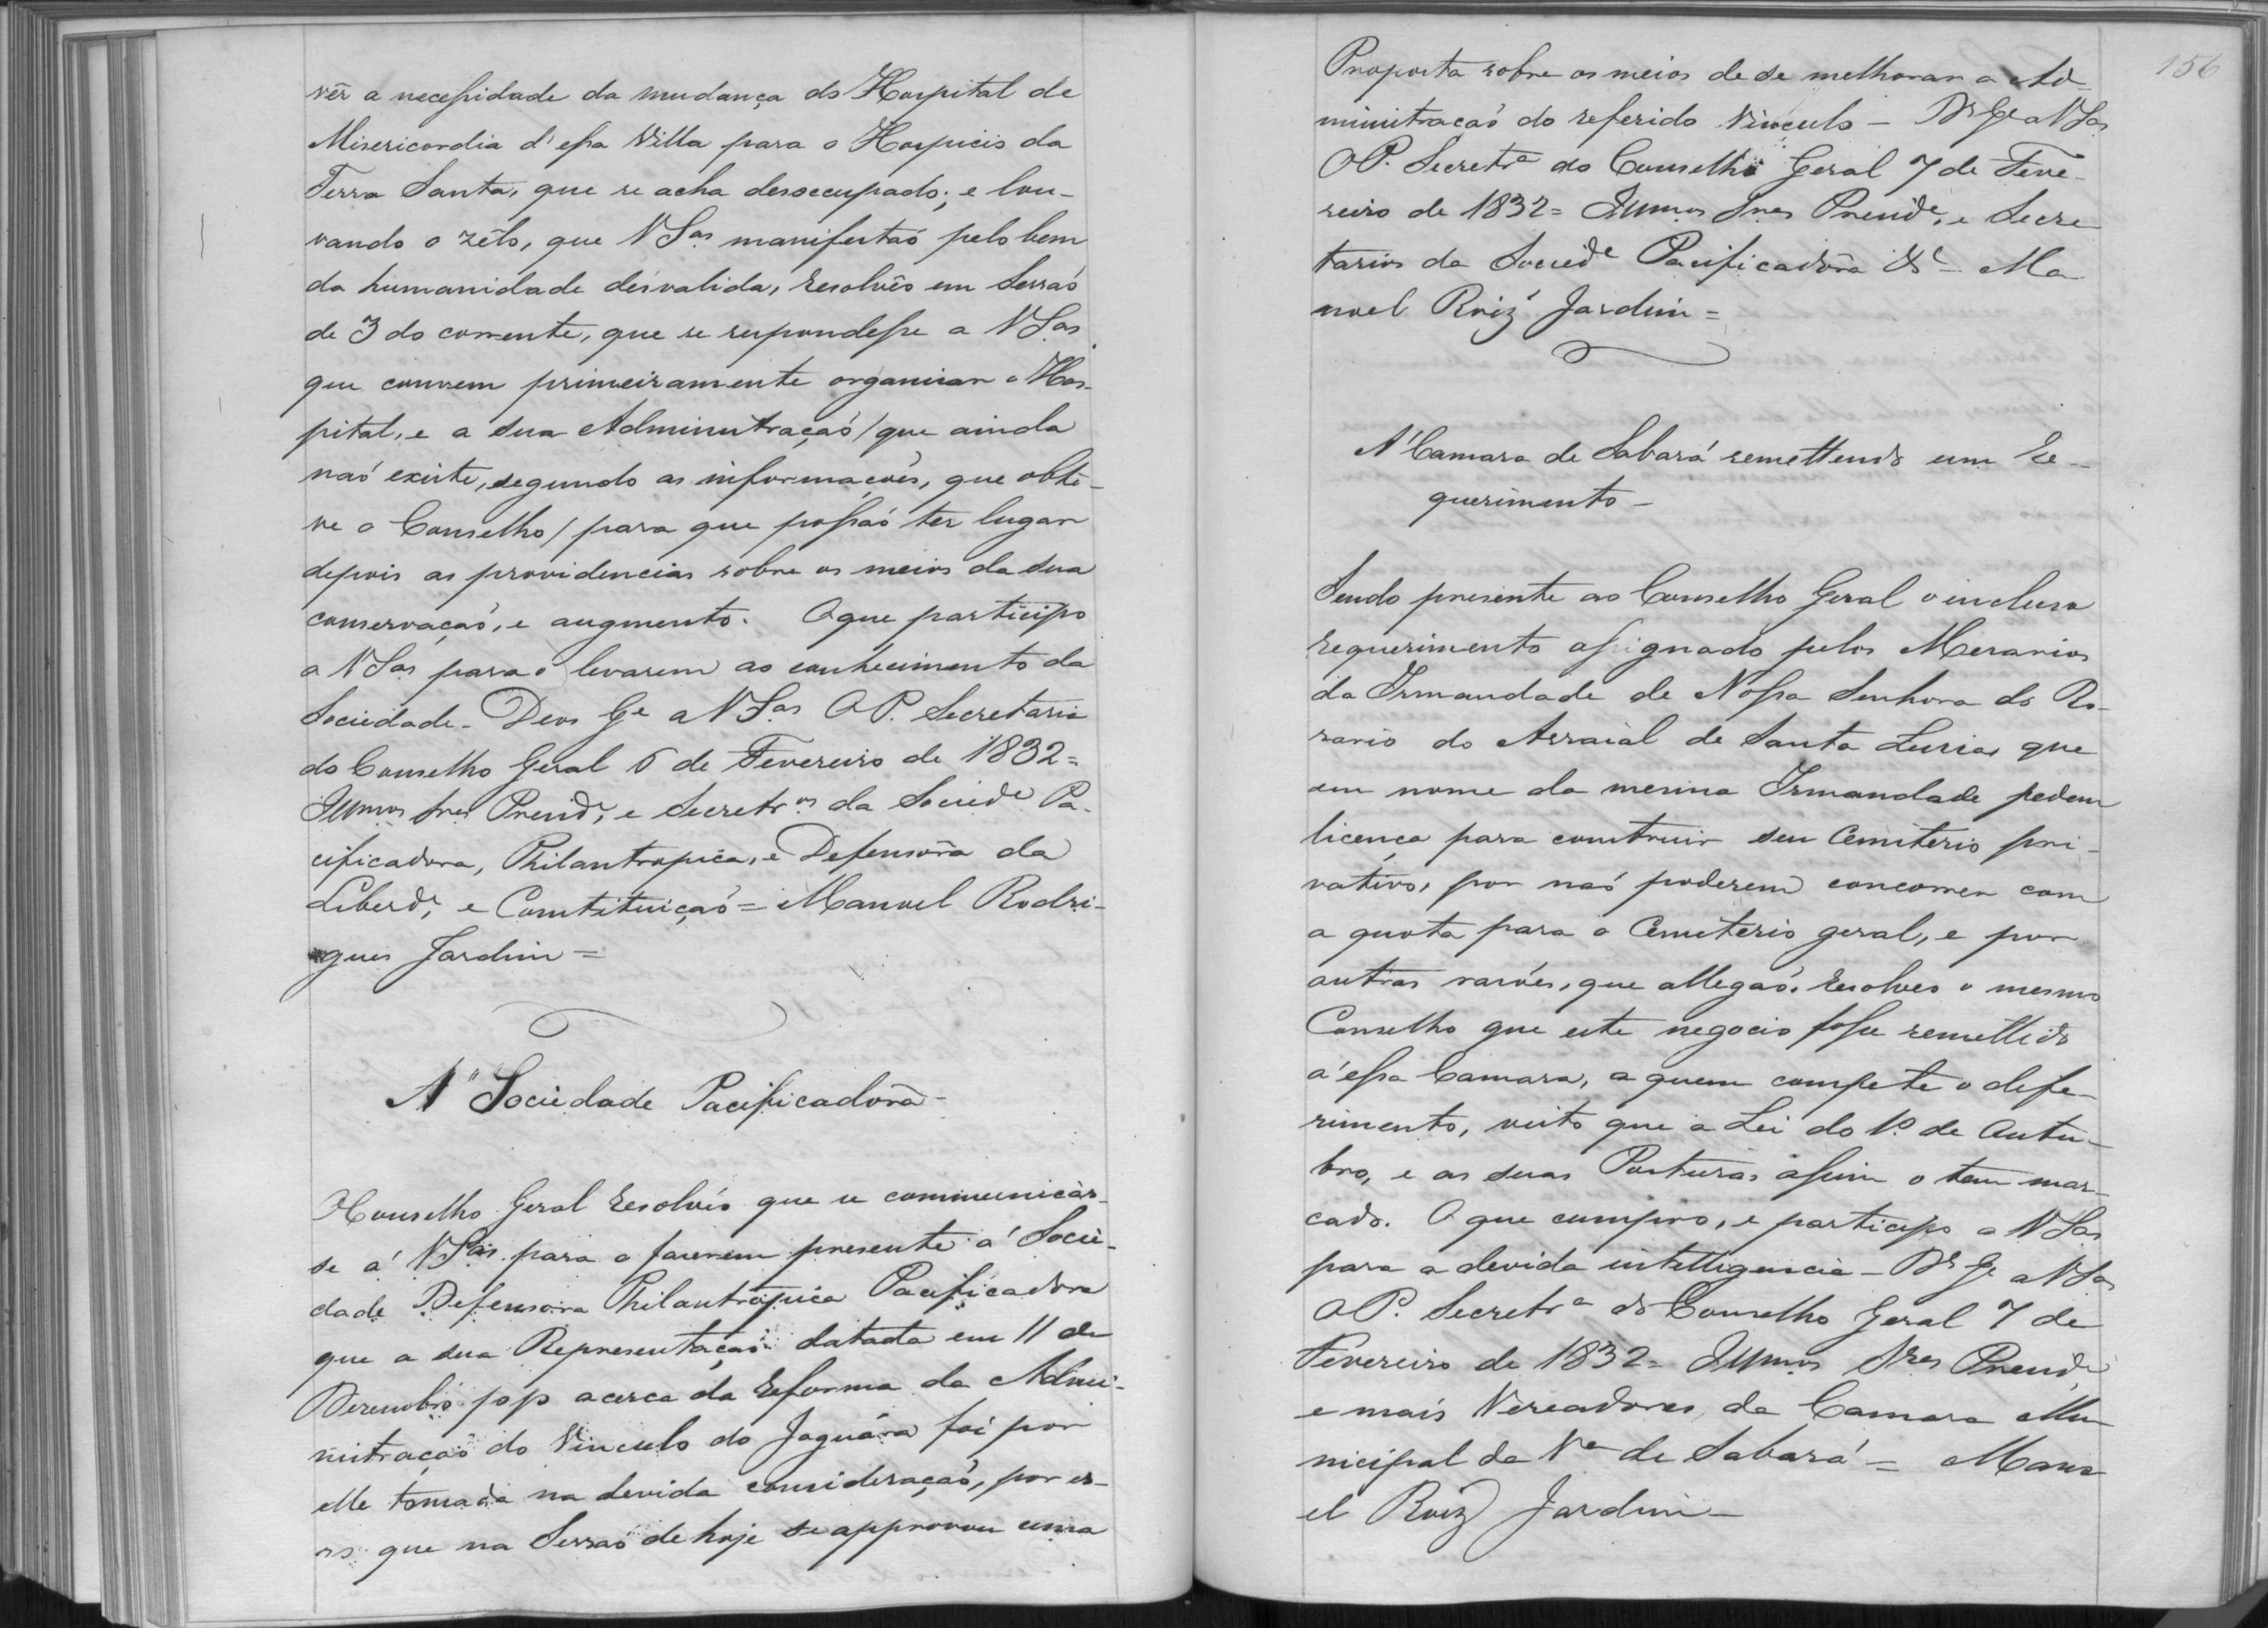 vêr a necessidade da mudança do Hospital de
Misericordia d'essa Villa para o Hospicio da
Terra Santa, que se acha desoccupado; e lou-
vando o zêlo, que VSas manifestaõ pelo bem
da humanidade desvalida, resolvêo em Sessaõ
de 3 do corrente, que se respondesse a VSas
que convem primeiramente organisar o Hos-
pital, e a sua Administraçaõ/que ainda
naõ existe, segundo as informações, que obte-
ve o Conselho/para que possaõ ter lugar
depois as providencias sobre os meios da sua
conservaçaõ, e augmento. O que participo
a VSas para o levarem ao conhecimento da
Sociedade - Deos Ge a VSas O P. Secretaria
do Conselho Geral 6 de Fevereiro de 1832 =
Illmos Snres Presid.e, e Secretros da Socied.e Pa-
cificadora, Philantropica, e Defensôra da
Liberd.e, e Constituiçaõ = Manoel Rodri-
gues Jardim =
A' Sociedade Pacificadôra -
O Conselho Geral resolvêo que se communicás-
se á VSas para o fazerem presente á Socie-
dade Defensora Philantropica Pacificadora
que a sua Representaçaõ datada em 11 de
Dezembro pp acerca da reforma da Admi-
nistraçaõ do Vinculo do Jaguára foi por
elle tomada na devida consideraçaõ, por is-
so que na Sessaõ de hoje se approvou uma
156
Proposta sobre os meios de se melhorar a Ad-
ministraçaõ do referido Vinculo - Ds Ge a VSas
O P. Secretra do Conselho Geral 7 de Feve-
reiro de 1832 = Illmos Snres Presid.e, e Secre
tarios da Socied.e Pacificadôra &c - Ma
noel Roiz Jardim =
A' Camara de Sabará remettendo um Re-
querimento -
Sendo presente ao Conselho Geral o incluso
requerimento assignado pelos Mesarios
da Irmandade de Nossa Senhora do Ro-
sario do Arraial de Santa Lusia, que
em nome da mesma Irmandade pedem
licença para construir seu Cemiterio pri-
vativo, por naõ poderem concorrer com
a quota para o Cemiterio geral, e por
outras rasões, que allegaõ, resolveo o mesmo
Conselho que este negocio fosse remettido
á essa Camara, a quem compete o defe-
rimento, visto que a Lei do 1º de Outu-
bro, e as suas Posturas assim o tem mar-
cado. O que cumpro, e participo a VSas
para a devida intelligencia - Ds Ge a VSas
O P. Secretra do Conselho Geral 7 de
Fevereiro de 1832 = Illmos Snres Presid.e
e mais Vereadores da Camara Mu
nicipal da Va de Sabará = Mano
el Roiz Jardim -